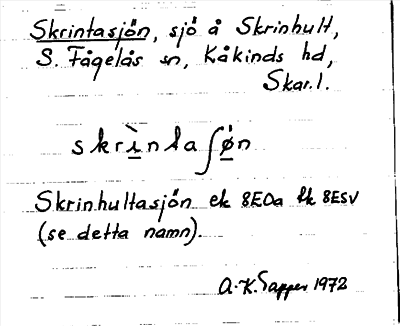 Skrintasjön, sjö å Skrinhult,
S. Fågelås sn, Kåkinds hd,
Skar.l.
skrìntaʃǿn
Skrinhultasjön ek 8E0a lk 8ESV
(se detta namn).
A.K. Sapper 1972